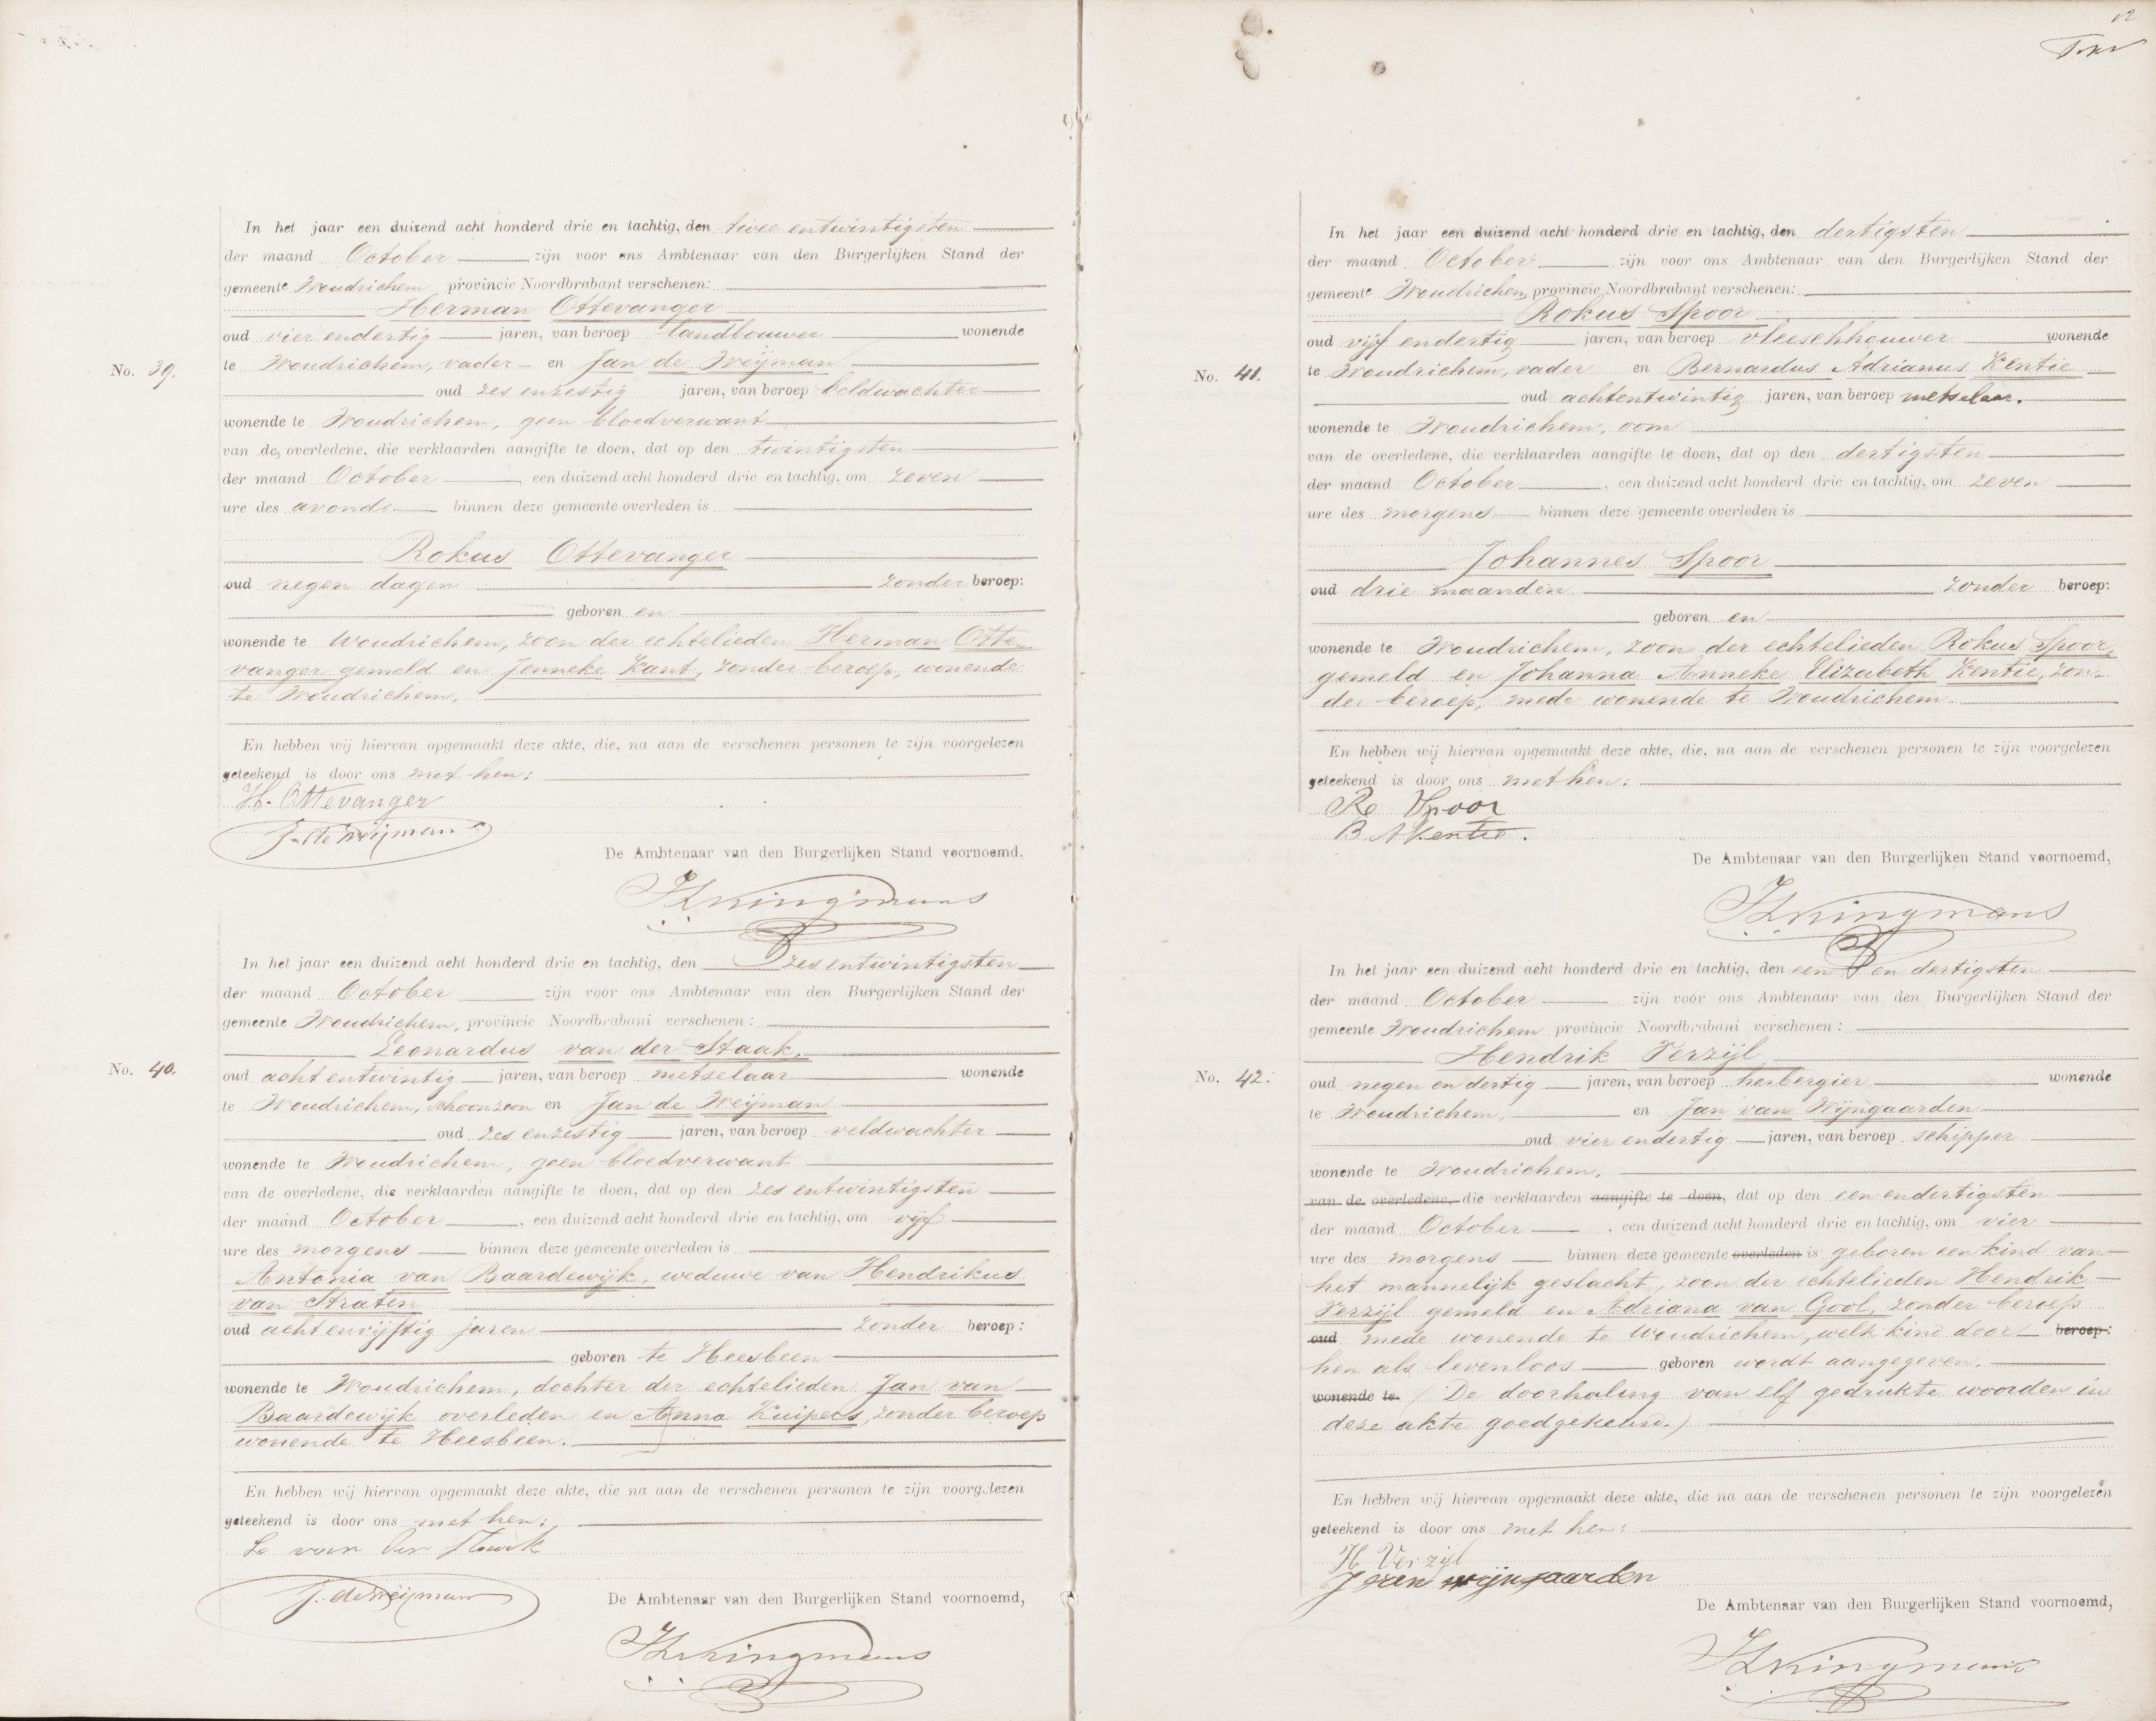 In het jaar een duizend acht honderd drie en tachtig, den twee entwintigsten
der maand October zijn voor ons Ambtenaar van den Burgerlijken Stand der
gemeente Woudrichem provincie Noordbrabant verschenen:
Herman Ottevanger
oud vier endertig jaren, van beroep landbouwer wonende
No. 39. te Woudrichem, vader en Jan de Weijman
oud zes enzestig jaren, van beroep veldwachter
wonende te Woudrichem, geen bloedverwant
van de, overledene, die verklaarden aangifte te doen, dat op den twintigsten
der maand October, een duizend acht honderd drie en tachtig, om zeven
ure des avonds binnen deze gemeente overleden is
Rokus Ottevanger
oud negen dagen zonder beroep:
geboren en
wonende te Woudrichem, zoon der echtelieden Herman Otte
vanger gemeld en Jenneke Kant, zonder beroep, wonende
te Woudrichem.
En hebben wij hiervan opgemaakt deze akte, die, na aan de verschenen personen te zijn voorgelezen
geteekend is door ons met hen:
H. Ottevanger
J. de Weijman
De Ambtenaar van den Burgerlijken Stand voornoemd,
In het jaar een duizend acht honderd drie en tachtig, den zes entwintigsten
der maand October zijn voor ons Ambtenaar van den Burgerlijken Stand der
gemeente Woudrichem, provincie Noordbrabant verschenen:
Leonardus van der Staak,
No. 40. oud acht entwintig jaren, van beroep metselaar wonende
te Woudrichem, schoonzoon en Jan de Weijman
oud zes enzestig jaren, van beroep veldwachter
wonende te Woudrichem, geen bloedverwant
van de overledene, die verklaarden aangifte te doen, dat op den zes entwintigsten
der maand October, een duizend acht honderd drie en tachtig, om vijf
ure des morgens binnen deze gemeente overleden is
Antonia van Baardewijk, weduwe van Hendrikus
van Straten
oud acht envijftig jaren zonder beroep:
geboren te Heesbeen
wonende te Woudrichem, dochter der echtelieden Jan van
Baardewijk overleden en Anna Kuipers, zonder beroep
wonende te Heesbeen.
En hebben wij hiervan opgemaakt deze akte, die na aan de verschenen personen te zijn voorgelezen
geteekend is door ons met hen:
L. van der Staak
J. de Weijman
De Ambtenaar van den Burgerlijken Stand voornoemd,
In het jaar een duizend acht honderd drie en tachtig, den dertigsten
der maand October zijn voor ons Ambtenaar van den Burgerlijken Stand der
gemeente Woudrichem provincie Noordbrabant verschenen:
Rokus Spoor
oud vijf endertig jaren, van beroep vleeschhouwer wonende
No. 41. te Woudrichem, vader en Bernardus Adrianus Kentie
oud achtentwintig jaren, van beroep metselaar.
wonende te Woudrichem, oom
van de overledene, die verklaarden aangifte te doen, dat op den dertigsten
der maand October, een duizend acht honderd drie en tachtig, om zeven
ure des morgens binnen deze gemeente overleden is
Johannes Spoor
oud drie maanden zonder beroep:
geboren en
wonende te Woudrichem, zoon der echtelieden Rokus Spoor,
gemeld en Johanna Anneke Elizabeth Kentie, zon-
der beroep, mede wonende te Woudrichem
En hebben wij hiervan opgemaakt deze akte, die, na aan de verschenen personen te zijn voorgelezen
geteekend is door ons met hen:
R Spoor
B. A Kentie.
De Ambtenaar van den Burgerlijken Stand voornoemd,
In het jaar een duizend acht honderd drie en tachtig, den een en dertigsten
der maand October zijn voor ons Ambtenaar van den Burgerlijken Stand der
gemeente Woudrichem provincie Noordbrabant verschenen:
Hendrik Verzijl
No. 42. oud negen en dertig jaren, van beroep herbergier wonende
te Woudrichem, en Jan van Wijngaarden
oud vier endertig jaren, van beroep schipper
wonende te Woudrichem,
van de overledene, die verklaarden aangifte te doen, dat op den een endertigsten
der maand October, een duizend acht honderd drie en tachtig, om vier
ure des morgens binnen deze gemeente overleden is geboren een kind van
het mannelijk geslacht, zoon der echtelieden Hendrik
Verzijl gemeld en Adriana van Gool, zonder beroep
oud mede wonende te Woudrichem, welk kind door beroep:
hen als levenloos geboren wordt aangegeven.
wonende te. (De doorhaling van elf gedrukte woorden in
deze akte goedgekeurd.)
En hebben wij hiervan opgemaakt deze akte, die na aan de verschenen personen te zijn voorgelezen
geteekend is door ons met hen:
H Verzijl
J van wijngaarden
De Ambtenaar van den Burgerlijken Stand voornoemd,